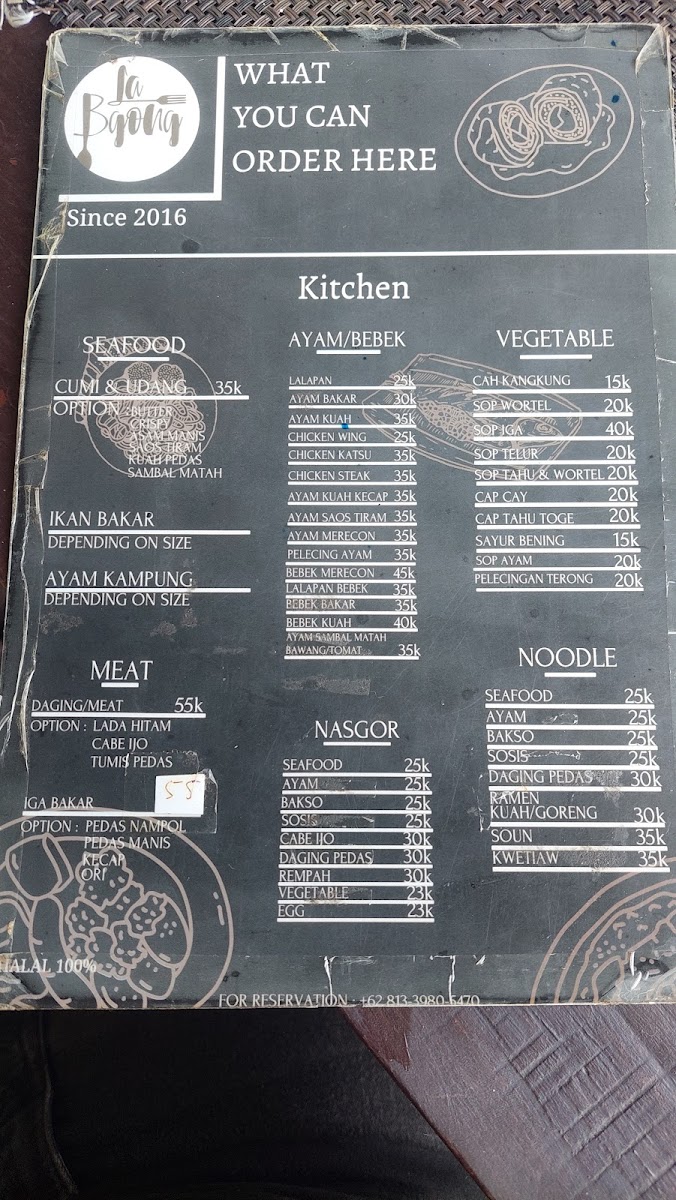 La
Bgong
Since 2016
WHAT
YOU CAN
ORDER HERE
Kitchen
SEAFOOD
CUMI & UDANG 35k
OPTION : BUTTER
CRISPY
ASAM MANIS
SAOS TIRAM
KUAH PEDAS
SAMBAL MATAH
IKAN BAKAR
DEPENDING ON SIZE
AYAM KAMPUNG
DEPENDING ON SIZE
MEAT
DAGING/MEAT 55k
OPTION : LADA HITAM
CABE IJO
TUMIS PEDAS
IGA BAKAR 55
OPTION : PEDAS NAMPOL
PEDAS MANIS
KECAP
ORI
AYAM/BEBEK
LALAPAN 25k
AYAM BAKAR 30k
AYAM KUAH 35k
CHICKEN WING 25k
CHICKEN KATSU 35k
CHICKEN STEAK 35k
AYAM KUAH KECAP 35k
AYAM SAOS TIRAM 35k
AYAM MERECON 35k
PELECING AYAM 35k
BEBEK MERECON 45k
LALAPAN BEBEK 35k
BEBEK BAKAR 35k
BEBEK KUAH 40k
AYAM SAMBAL MATAH
BAWANG/TOMAT 35k
NASGOR
SEAFOOD 25k
AYAM 25k
BAKSO 25k
SOSIS 25k
CABE IJO 30k
DAGING PEDAS 30k
REMPAH 30k
VEGETABLE 23k
EGG 23k
VEGETABLE
CAH KANGKUNG 15k
SOP WORTEL 20k
SOP IGA 40k
SOP TELUR 20k
SOP TAHU & WORTEL 20k
CAP CAY 20k
CAP TAHU TOGE 20k
SAYUR BENING 15k
SOP AYAM 20k
PELECINGAN TERONG 20k
NOODLE
SEAFOOD 25k
AYAM 25k
BAKSO 25k
SOSIS 25k
DAGING PEDAS 30k
RAMEN
KUAH/GORENG 30k
SOUN 35k
KWETIAW 35k
HALAL 100%
FOR RESERVATION : +62 813-3980-5470